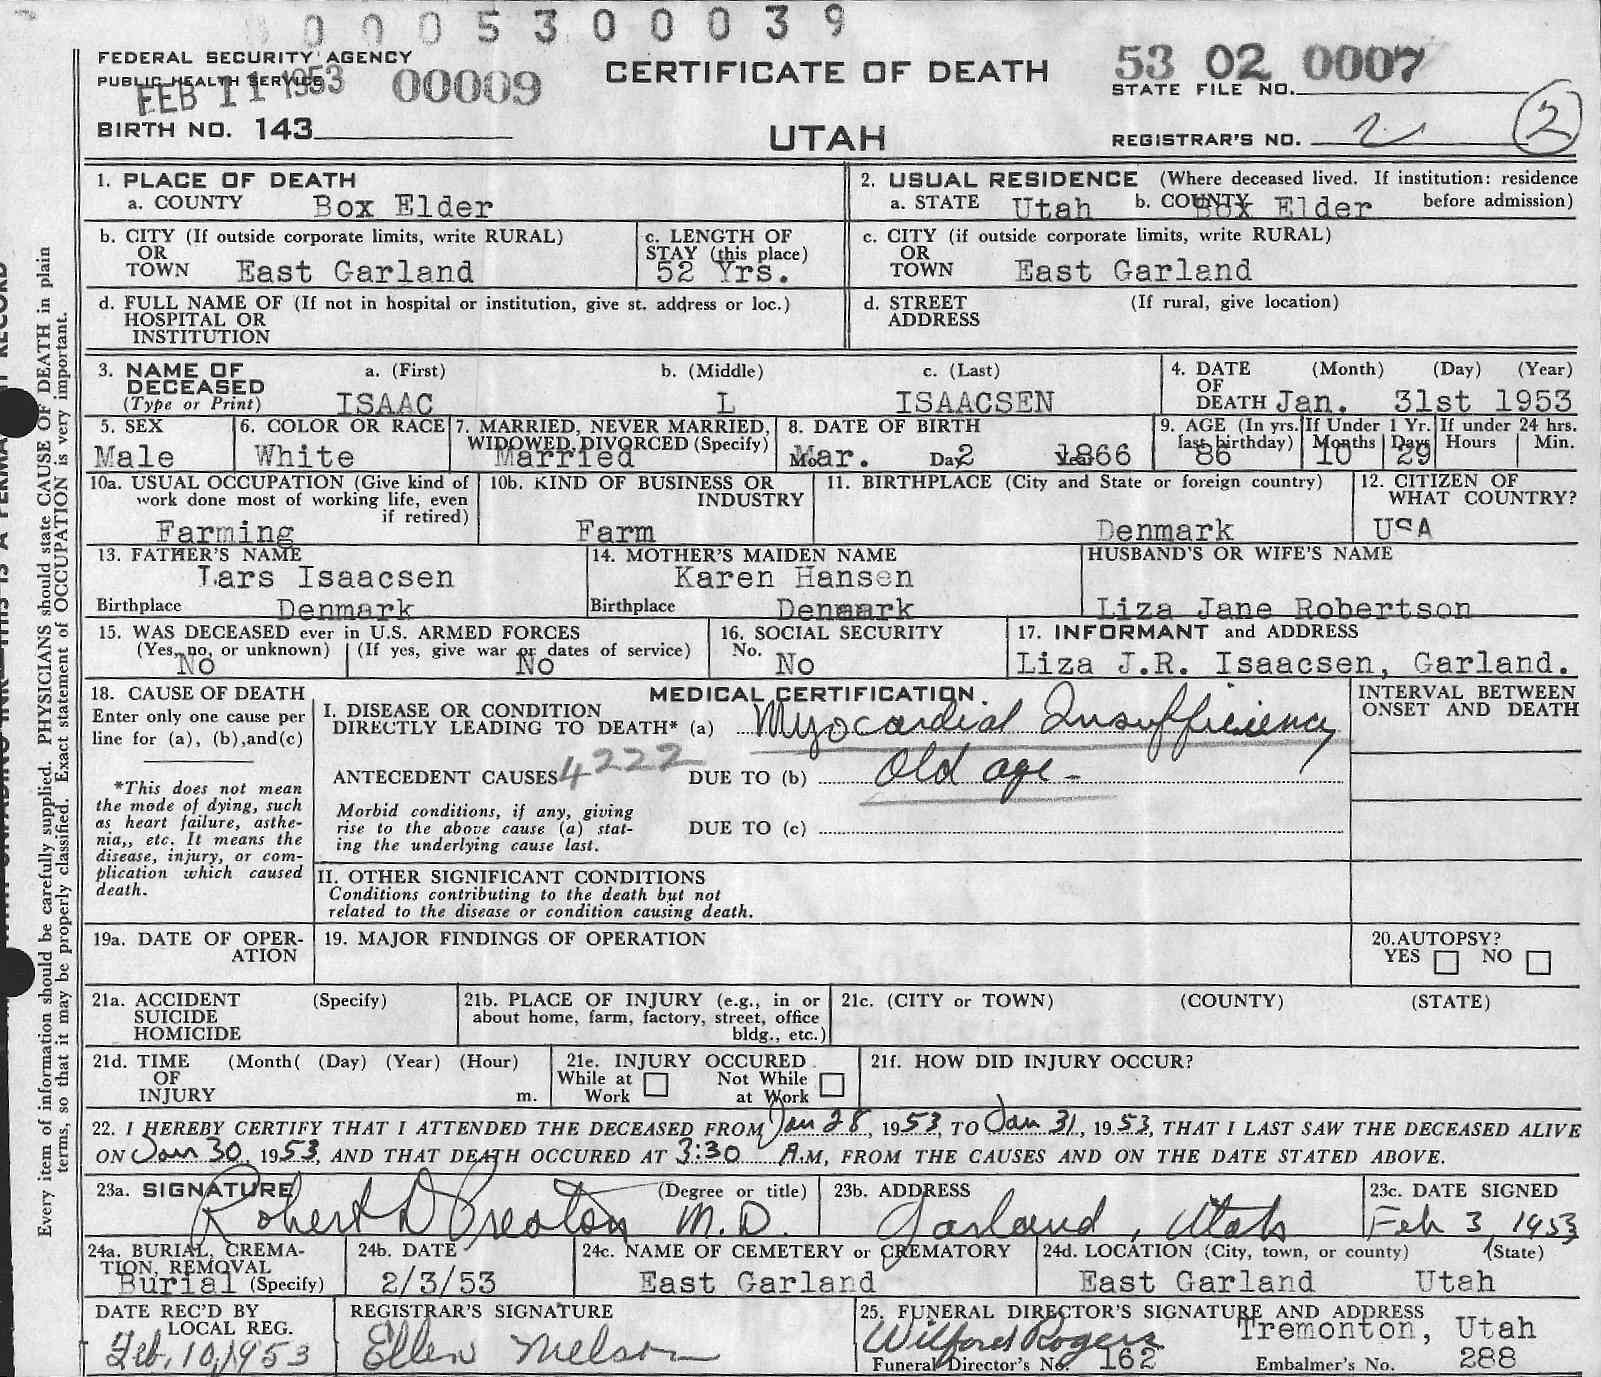 0 0 0 5 3 0 0 0 3 9
FEDERAL SECURITY AGENCY
PUBLIC HEALTH SERVICE
FEB 11 1953 00009
CERTIFICATE OF DEATH
53 02 0007
STATE FILE NO.
BIRTH NO. 143
UTAH
REGISTRAR'S NO. 2 2
1. PLACE OF DEATH
a. COUNTY Box Elder
2. USUAL RESIDENCE (Where deceased lived. If institution: residence
a. STATE Utah b. COUNTY Box Elder before admission)
b. CITY (If outside corporate limits, write RURAL)
OR
TOWN East Garland
c. LENGTH OF
STAY (this place)
52 Yrs.
c. CITY (if outside corporate limits, write RURAL)
OR
TOWN East Garland
d. FULL NAME OF (If not in hospital or institution, give st. address or loc.)
HOSPITAL OR
INSTITUTION
d. STREET (If rural, give location)
ADDRESS
3. NAME OF
DECEASED
(Type or Print)
a. (First) b. (Middle) c. (Last)
ISAAC L ISAACSEN
4. DATE (Month) (Day) (Year)
OF
DEATH Jan. 31st 1953
5. SEX
Male
6. COLOR OR RACE
White
7. MARRIED, NEVER MARRIED,
WIDOWED, DIVORCED (Specify)
Married
8. DATE OF BIRTH
Mar. Day 2 Year 1866
9. AGE (In yrs.
last birthday)
86
If Under 1 Yr.
Months Days
10 29
If under 24 hrs.
Hours Min.
10a. USUAL OCCUPATION (Give kind of
work done most of working life, even
if retired)
Farming
10b. KIND OF BUSINESS OR
INDUSTRY
Farm
11. BIRTHPLACE (City and State or foreign country)
Denmark
12. CITIZEN OF
WHAT COUNTRY?
USA
13. FATHER'S NAME
Lars Isaacsen
Birthplace Denmark
14. MOTHER'S MAIDEN NAME
Karen Hansen
Birthplace Denmark
HUSBAND'S OR WIFE'S NAME
Liza Jane Robertson
15. WAS DECEASED ever in U.S. ARMED FORCES
(Yes, no, or unknown) (If yes, give war or dates of service)
No No
16. SOCIAL SECURITY
No. No
17. INFORMANT and ADDRESS
Liza J.R. Isaacsen, Garland.
18. CAUSE OF DEATH
Enter only one cause per
line for (a), (b), and (c)
*This does not mean
the mode of dying, such
as heart failure, asthe-
nia,, etc. It means the
disease, injury, or com-
plication which caused
death.
MEDICAL CERTIFICATION
I. DISEASE OR CONDITION
DIRECTLY LEADING TO DEATH* (a) Myocardial Insufficiency
ANTECEDENT CAUSES 4222 DUE TO (b) Old age -
Morbid conditions, if any, giving
rise to the above cause (a) stat-
ing the underlying cause last.
DUE TO (c)
INTERVAL BETWEEN
ONSET AND DEATH
II. OTHER SIGNIFICANT CONDITIONS
Conditions contributing to the death but not
related to the disease or condition causing death.
19a. DATE OF OPER-
ATION
19. MAJOR FINDINGS OF OPERATION
20. AUTOPSY?
YES NO
21a. ACCIDENT (Specify)
SUICIDE
HOMICIDE
21b. PLACE OF INJURY (e.g., in or
about home, farm, factory, street, office
bldg., etc.)
21c. (CITY or TOWN) (COUNTY) (STATE)
21d. TIME (Month( (Day) (Year) (Hour)
OF
INJURY m.
21e. INJURY OCCURED
While at Not While
Work at Work
21f. HOW DID INJURY OCCUR?
22. I HEREBY CERTIFY THAT I ATTENDED THE DECEASED FROM Jan 28, 1953, TO Jan 31, 1953, THAT I LAST SAW THE DECEASED ALIVE
ON Jan 30, 1953, AND THAT DEATH OCCURED AT 3:30 A.M, FROM THE CAUSES AND ON THE DATE STATED ABOVE.
23a. SIGNATURE (Degree or title)
Robert D Preston M.D.
23b. ADDRESS
Garland, Utah
23c. DATE SIGNED
Feb 3 1953
24a. BURIAL, CREMA-
TION, REMOVAL
Burial (Specify)
24b. DATE
2/3/53
24c. NAME OF CEMETERY or CREMATORY
East Garland
24d. LOCATION (City, town, or county) (State)
East Garland Utah
DATE REC'D BY
LOCAL REG.
Feb. 10, 1953
REGISTRAR'S SIGNATURE
Ellen Nielson
25. FUNERAL DIRECTOR'S SIGNATURE AND ADDRESS
Wilford Rogers Tremonton, Utah
Funeral Director's No. 162 Embalmer's No. 288
Every item of information should be carefully supplied. PHYSICIANS should state CAUSE OF DEATH in plain
terms, so that it may be properly classified. Exact statement of OCCUPATION is very important.